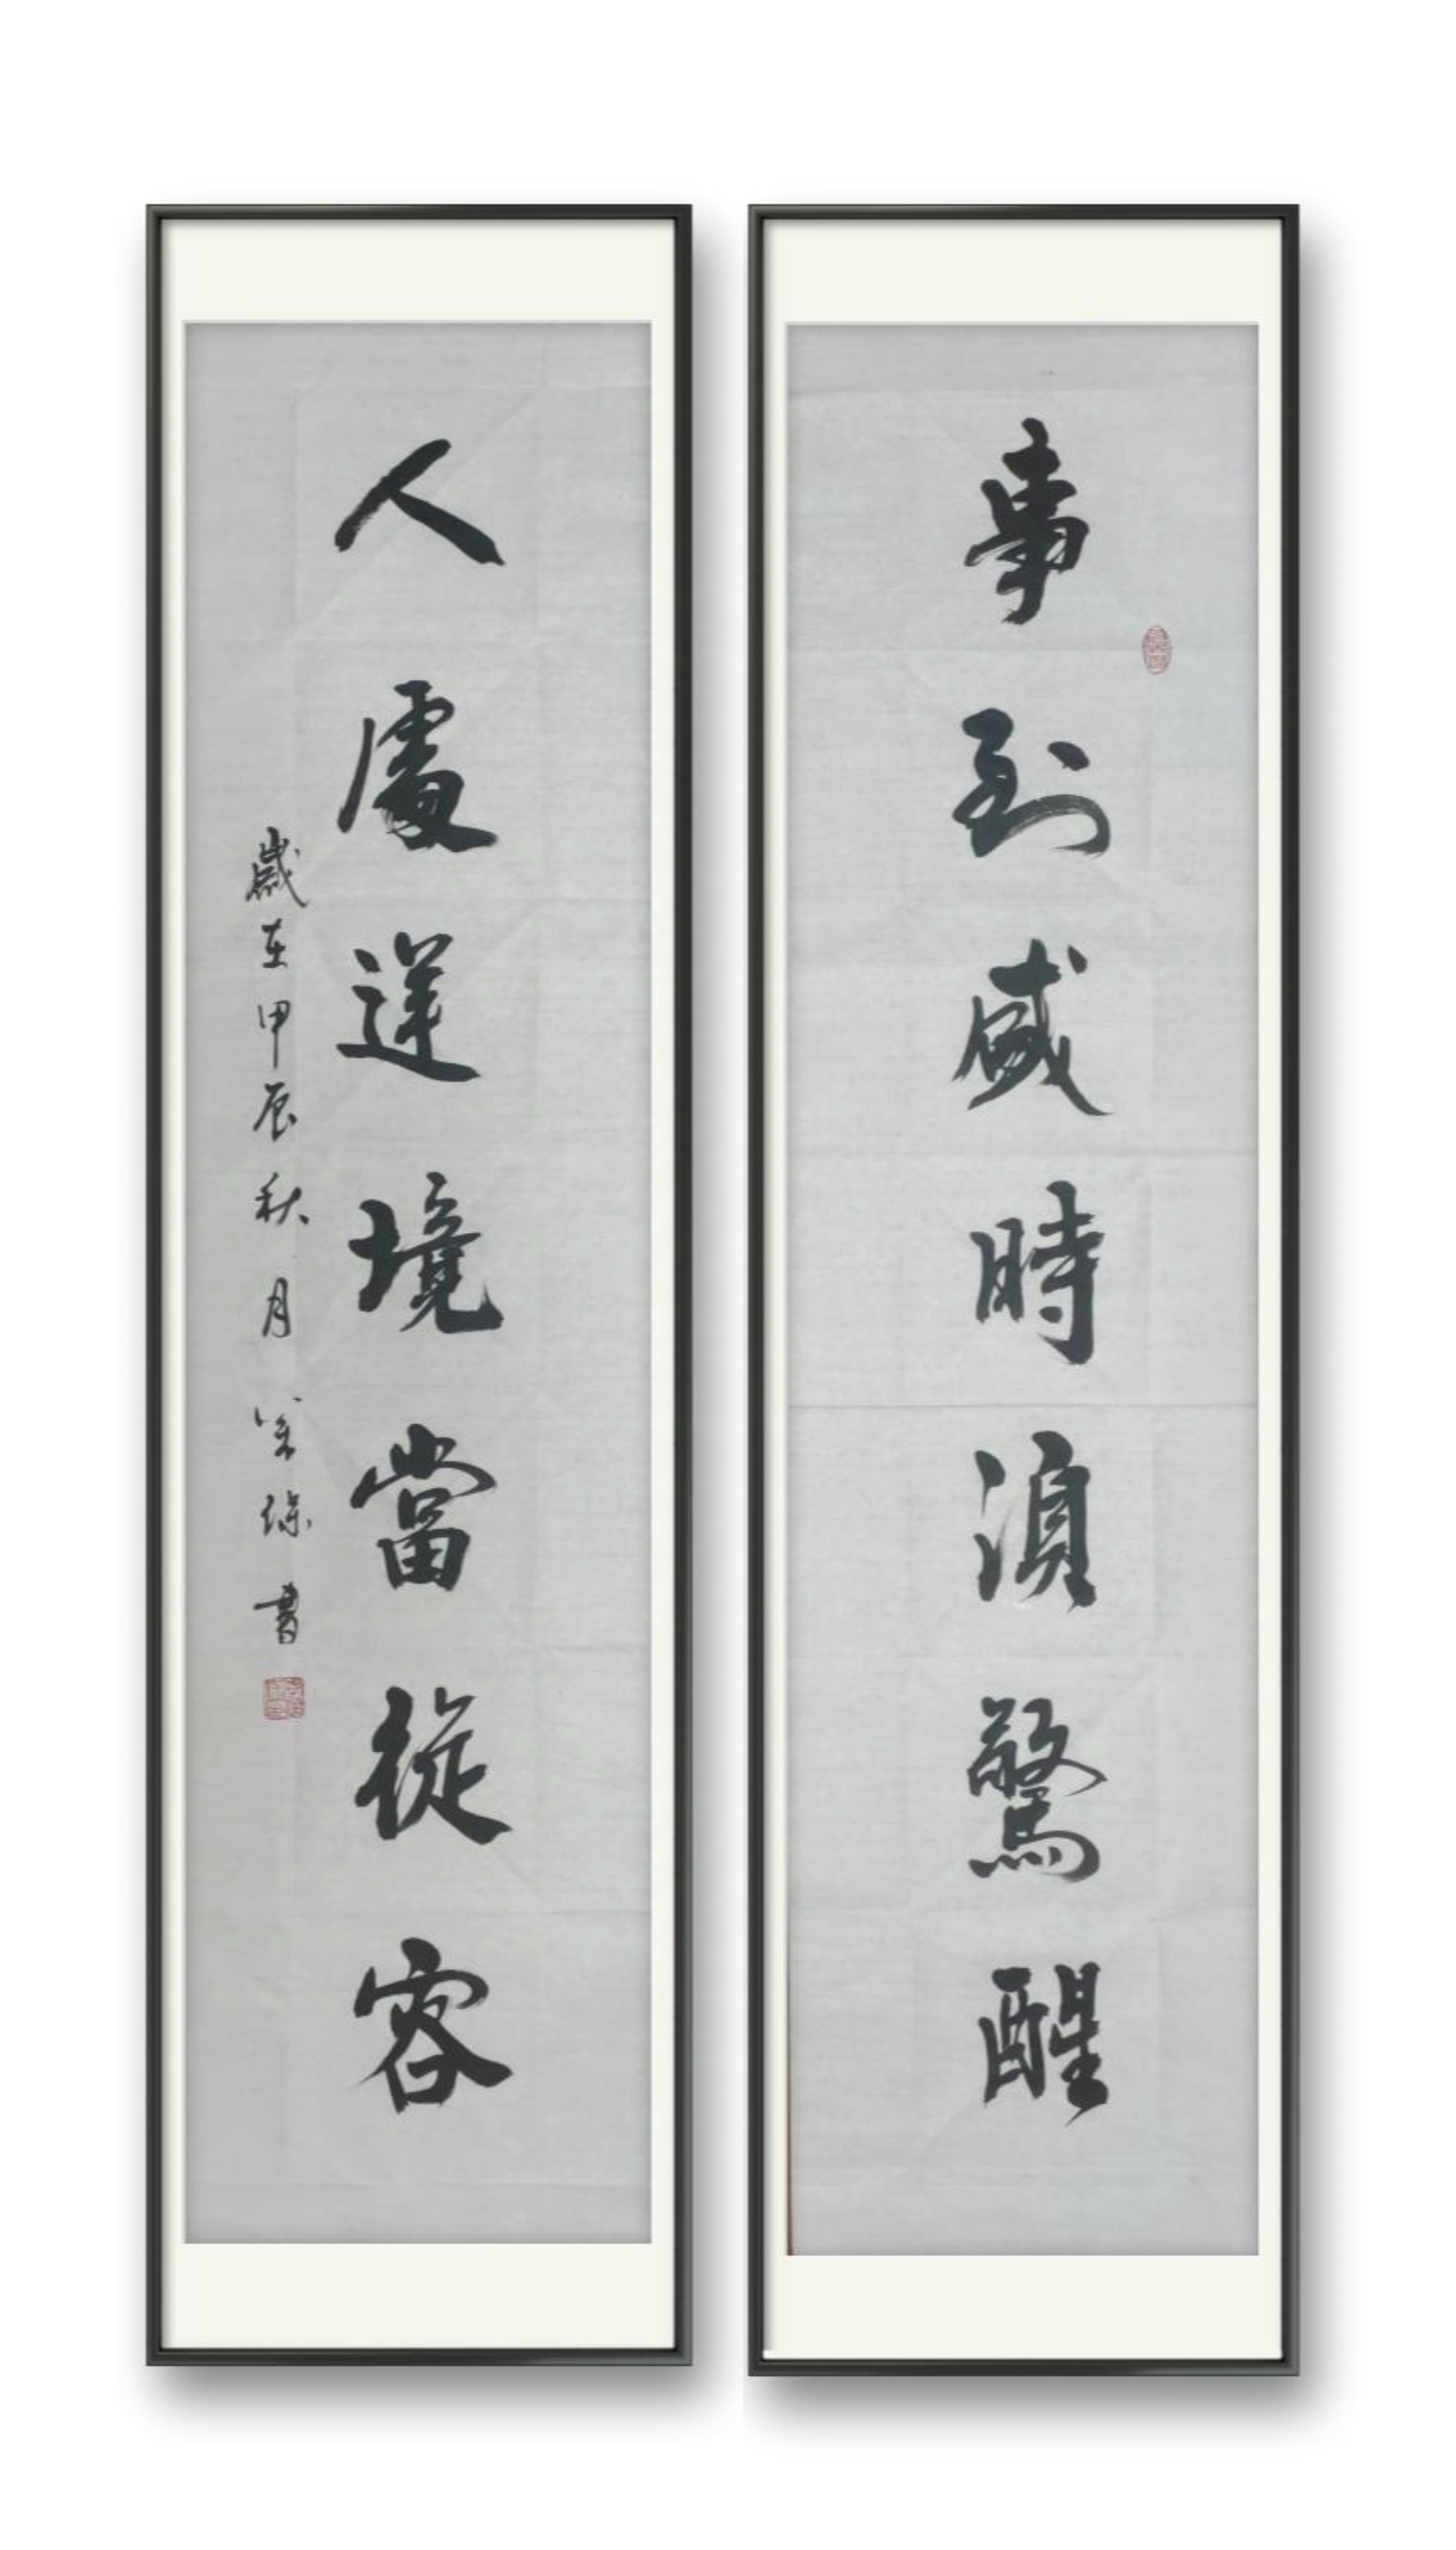 事到盛時湏驚醒
人處逆境當從容
歲在甲辰秋月
書